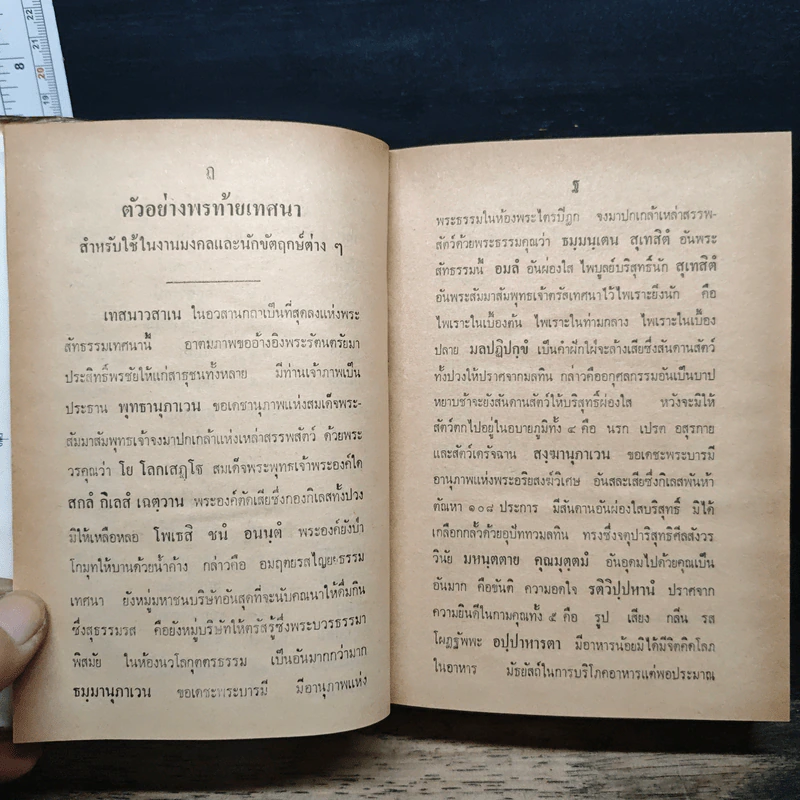 8
22
21
20
19
ถ
ตัวอย่างพรท้ายเทศนา
สำหรับใช้ในงานมงคลและนักขัตฤกษ์ต่าง ๆ
เทสนาวสาเน ในอวสานกถาเป็นที่สุดลงแห่งพระ
สัทธรรมเทศนานี้ อาตมภาพขออ้างอิงพระรัตนตรัยมา
ประสิทธิ์พรชัยให้แก่สาธุชนทั้งหลาย มีท่านเจ้าภาพเป็น
ประธาน พุทธานุภาเวน ขอเดชานุภาพแห่งสมเด็จพระ-
สัมมาสัมพุทธเจ้าจงมาปกเกล้าแห่งเหล่าสรรพสัตว์ ด้วยพระ
วรคุณว่า โย โลกเสฏฺโฐ สมเด็จพระพุทธเจ้าพระองค์ใด
สกลํ กิเลสํ เฉตฺวาน พระองค์ตัดเสียซึ่งกองกิเลสทั้งปวง
มิให้เหลือหลอ โพเธสิ ชนํ อนนฺตํ พระองค์ยังบัว
โกมุทให้บานด้วยน้ำค้าง กล่าวคือ อมฤตยรสไญยธรรม
เทศนา ยังหมู่มหาชนบริษัทอันสุดที่จะนับคณนาให้ดื่มกิน
ซึ่งสุธรรมรส คือยังหมู่บริษัทให้ตรัสรู้ซึ่งพระบวรธรรมา
พิสมัย ในห้องนวโลกุตตรธรรม เป็นอันมากกว่ามาก
ธมฺมานุภาเวน ขอเดชะพระบารมี มีอานุภาพแห่ง
ฐ
พระธรรมในห้องพระไตรปิฎก จงมาปกเกล้าเหล่าสรรพ-
สัตว์ด้วยพระธรรมคุณว่า ธมฺมนฺเตน สุเทสิตํ อันพระ
สัทธรรมนี้ อมลํ อันผ่องใส ไพบูลย์บริสุทธิ์นัก สุเทสิตํ
อันพระสัมมาสัมพุทธเจ้าตรัสเทศนาไว้ไพเราะยิ่งนัก คือ
ไพเราะในเบื้องต้น ไพเราะในท่ามกลาง ไพเราะในเบื้อง
ปลาย มลปฏิปกฺขํ เป็นค่าฝักใฝ่จะล้างเสียซึ่งสันดานสัตว์
ทั้งปวงให้ปราศจากมลทิน กล่าวคืออกุศลกรรมอันเป็นบาป
หยาบช้าจะยังสันดานสัตว์ให้บริสุทธิ์ผ่องใส หวังจะมิให้
สัตว์ตกไปอยู่ในอบายภูมิทั้ง ๔ คือ นรก เปรต อสุรกาย
และสัตว์เดรัจฉาน สงฺฆานุภาเวน ขอเดชะพระบารมี
อานุภาพแห่งพระอริยสงฆ์วิเศษ อันสละเสียซึ่งกิเลสพันห้า
ตัณหา ๑๐๘ ประการ มีสันดานอันผ่องใสบริสุทธิ์ มิได้
เกลือกกลั้วด้วยอุปัททวมลทิน ทรงซึ่งจตุปาริสุทธิศีลสังวร
วินัย มหนฺตตาย คุณมุตฺตมํ อันอุดมไปด้วยคุณเป็น
อันมาก คือขันติ ความอดใจ รติวิปฺปหานํ ปราศจาก
ความยินดีในกามคุณทั้ง ๕ คือ รูป เสียง กลิ่น รส
โผฏฐัพพะ อปฺปาหารตา มีอาหารน้อยมิได้มีจิตคิดโลภ
ในอาหาร มัธยัสถ์ในการบริโภคอาหารแต่พอประมาณ